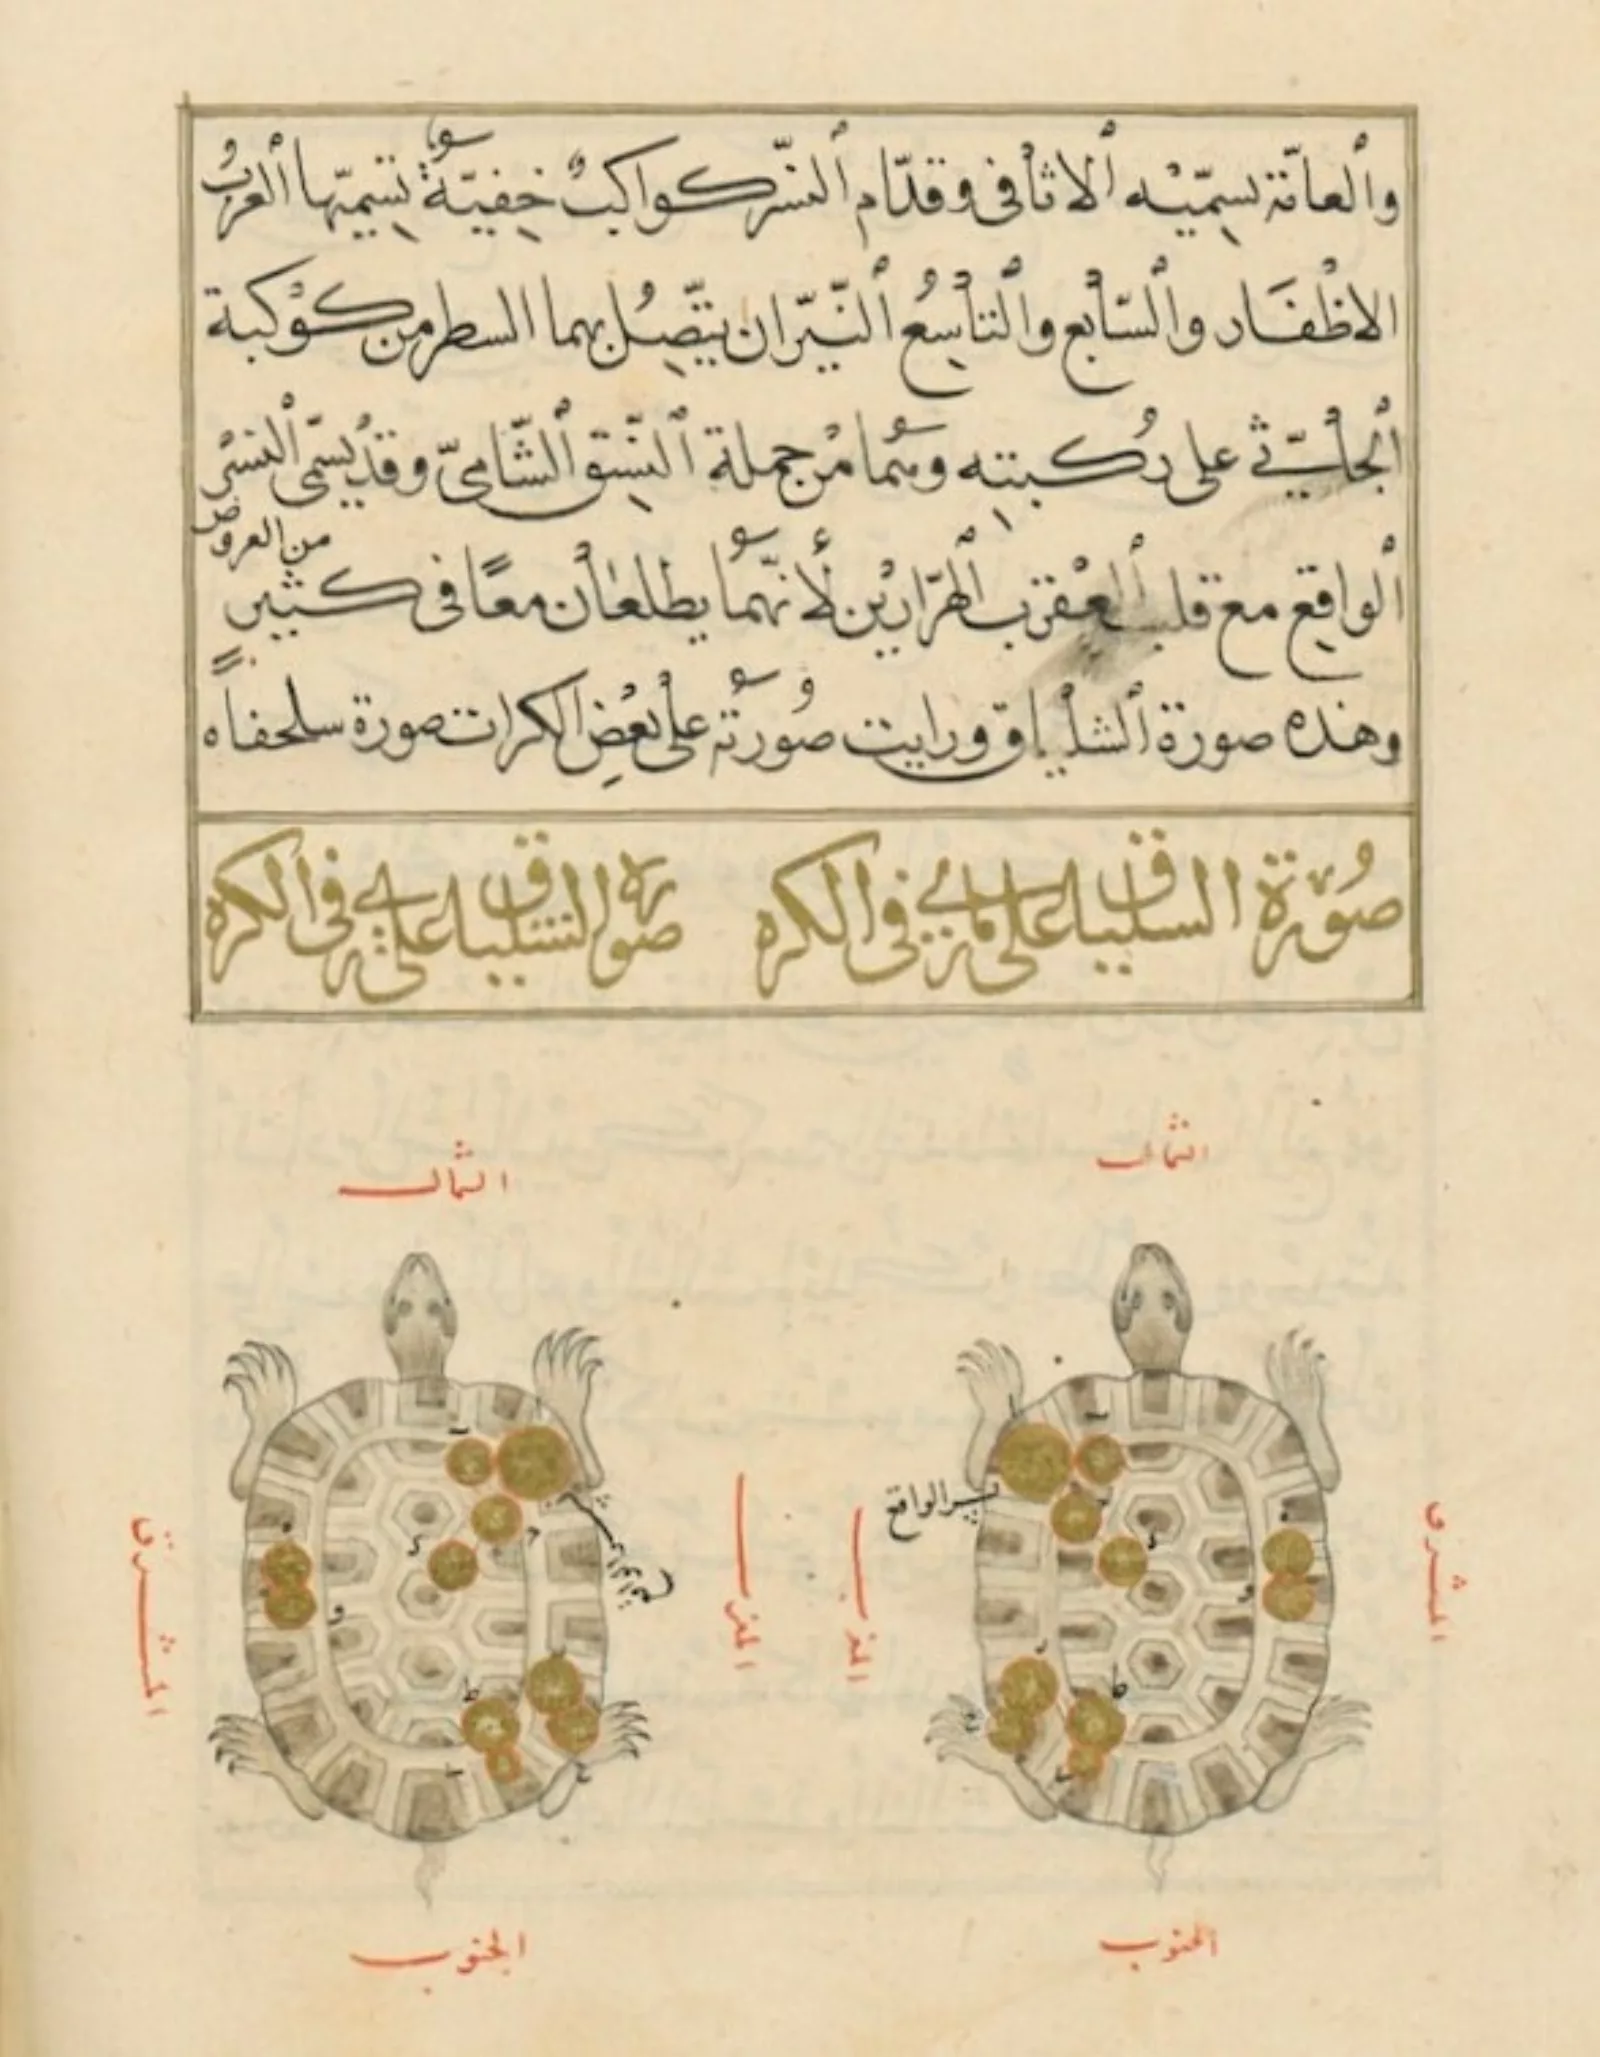 والعامّة تسمّيه الاثافى وقدّام النسّر كواكبٌ خفيّةٌ تسميّها العربُ
الاظفَار والسّابع والتاسِعُ النيّران يتّصِلُ بهما السطر من كوكبة
الجاثي على رُكبتِه وهُما مْن جملة النسِق الشّامىّ وقدْ يسمّى النسْرُ
الواقِع مع قلب العقرب الهرّاريْن لأنهّما يطلعاْن معًا فى كثيٍر
من العروض
وهذه صورة الشلياق ورايت صُورته على بعْضِ الكرات صورة سلحفاه
صُورة السلياق على ما يرى فى الكره
صورة الشلياق على ما يرى فى الكره
الشمال
الشمال
نسر الواقع
المشرق
المغرب
المغرب
المشرق
الجنوب
الجنوب